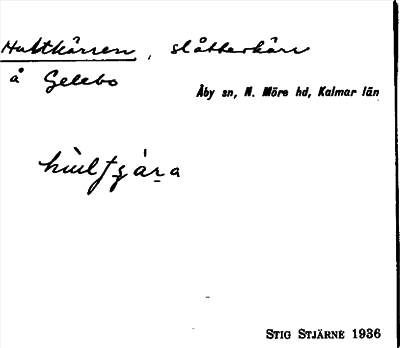 Hultkärren, slåtterkärr
å Gelebo
Åby sn, N. Möre hd, Kalmar län
STIG STJÄRNE 1936